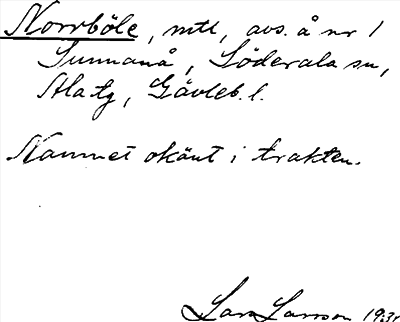 Norrböle, mtl, avs. å nr 1
Sunnanå, Söderala sn,
Ala tg, Gävleb. l.
Namnet okänt i trakten.
Lars Larsson 193